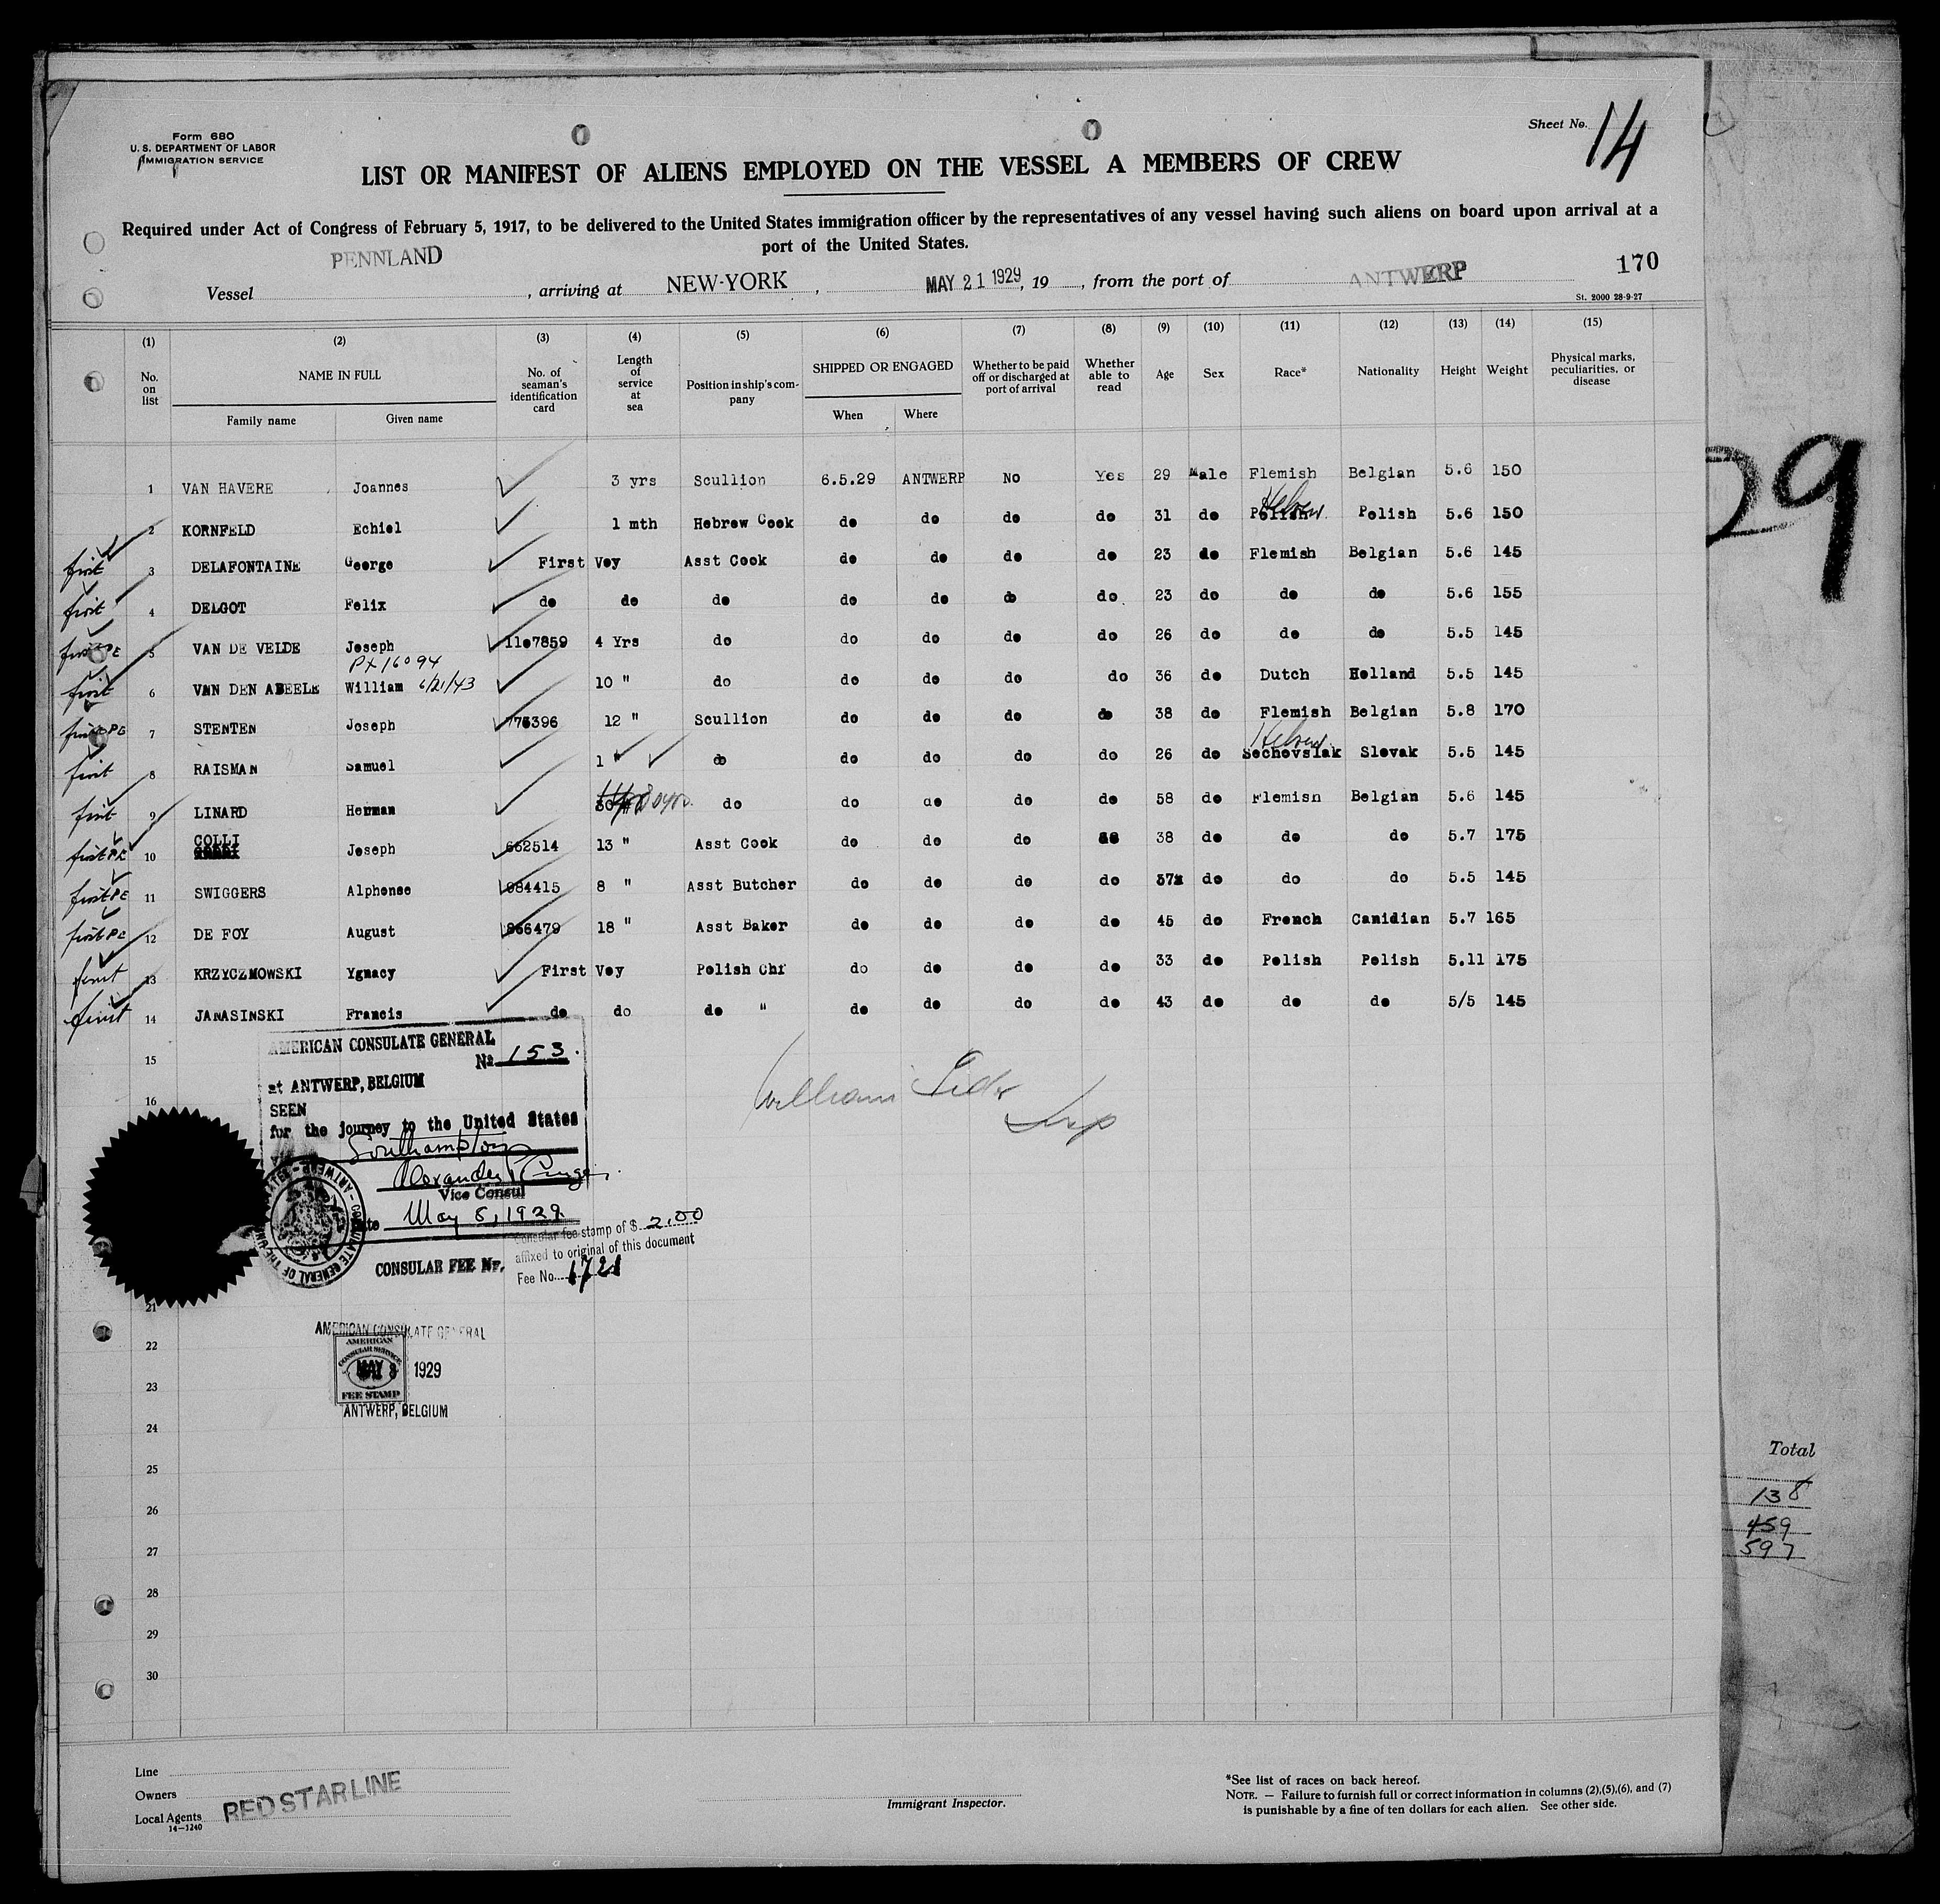 Form 680
U. S. DEPARTMENT OF LABOR
IMMIGRATION SERVICE
Sheet No. 14
LIST OR MANIFEST OF ALIENS EMPLOYED ON THE VESSEL A MEMBERS OF CREW
Required under Act of Congress of February 5, 1917, to be delivered to the United States immigration officer by the representatives of any vessel having such aliens on board upon arrival at a
port of the United States.
Vessel PENNLAND, arriving at NEW-YORK, MAY 21 1929, 19, from the port of ANTWERP 170
St. 2000 28-9-27
(1) (2) (3) (4) (5) (6) (7) (8) (9) (10) (11) (12) (13) (14) (15)
No. on list NAME IN FULL No. of seaman's identification card Length of service at sea Position in ship's company SHIPPED OR ENGAGED Whether to be paid off or discharged at port of arrival Whether able to read Age Sex Race* Nationality Height Weight Physical marks, peculiarities, or disease
Family name Given name When Where
1 VAN HAVERE Joannes 3 yrs Scullion 6.5.29 ANTWERP No Yes 29 Male Flemish Belgian 5.6 150
Hebrew
2 KORNFELD Echiel 1 mth Hebrew Cook do do do do 31 do Polish Polish 5.6 150
first 3 DELAFONTAINE George First Voy Asst Cook do do do do 23 do Flemish Belgian 5.6 145
first 4 DELGOT Felix do do do do do do do 23 do do do 5.6 155
first PE 5 VAN DE VELDE Joseph 1107859 4 Yrs do do do do do 26 do do do 5.5 145
PX 16094
first 6 VAN DEN ABEELE William 6/21/43 10 " do do do do do 36 do Dutch Holland 5.5 145
first PE 7 STENTEN Joseph 775396 12 " Scullion do do do do 38 do Flemish Belgian 5.8 170
Hebrew
first 8 RAISMAN Samuel 1 " do do do do do 26 do Sechovslak Slovak 5.5 145
first 9 LINARD Herman 30 yrs. do do do do do 58 do Flemish Belgian 5.6 145
first PE 10 COLLI Joseph 662514 13 " Asst Cook do do do do 38 do do do 5.7 175
first PE 11 SWIGGERS Alphonse 984415 8 " Asst Butcher do do do do 37 do do do 5.5 145
first PE 12 DE FOY August 866479 18 " Asst Baker do do do do 45 do French Canidian 5.7 165
first 13 KRZYCZMOWSKI Ygnacy First Voy Polish Chr do do do do 33 do Polish Polish 5.11 175
first 14 JANASINSKI Francis do do do " do do do do 43 do do do 5/5 145
15
16
AMERICAN CONSULATE GENERAL
No 153.
at ANTWERP, BELGIUM
SEEN
for the journey to the United States
Southampton
Vice Consul
Date May 8, 1929
CONSULAR FEE Nr.
Consular fee stamp of $ 2.00
affixed to original of this document
Fee No. 1721
William
21
22
23
24
25
26
27
28
29
30
AMERICAN CONSULATE GENERAL
AMERICAN
CONSULAR SERVICE
MAY 8 1929
FEE STAMP
ANTWERP, BELGIUM
Total
138
459
597
29
Line
Owners
Local Agents RED STAR LINE
14-1240
Immigrant Inspector.
*See list of races on back hereof.
NOTE. — Failure to furnish full or correct information in columns (2),(5),(6), and (7)
is punishable by a fine of ten dollars for each alien. See other side.